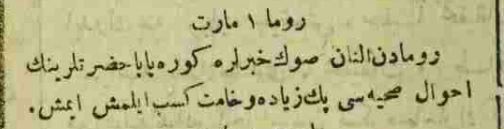 روما ١ مارت
رومادن النان صوك خبرلره كوره پاپا حضرتلرينك
احوال صحيه سى پك زياده وخامت كسب ايلمش ايمش.